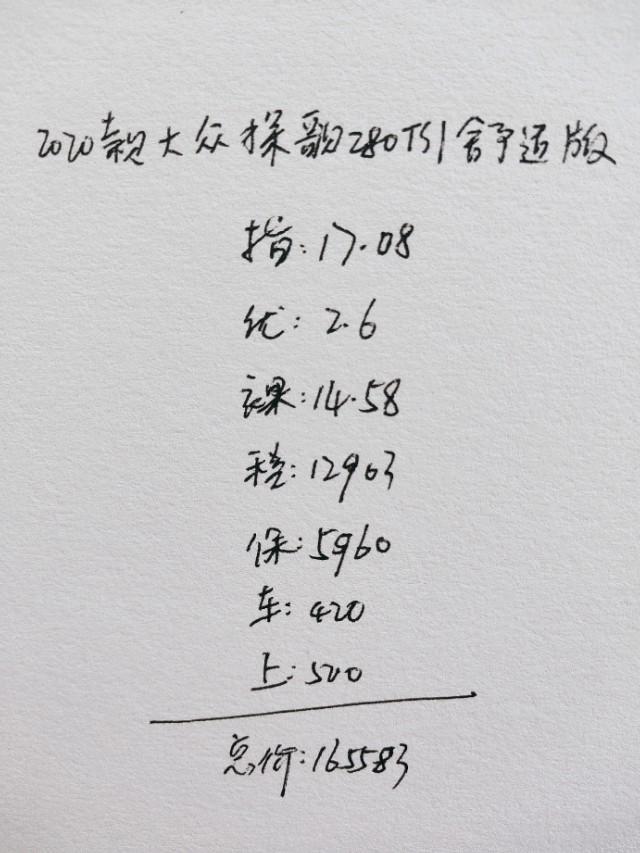 2020款大众探歌280TSI舒适版
指:17.08
优:2.6
裸:14.58
税:12903
保:5960
车:420
上:500
总价:165583